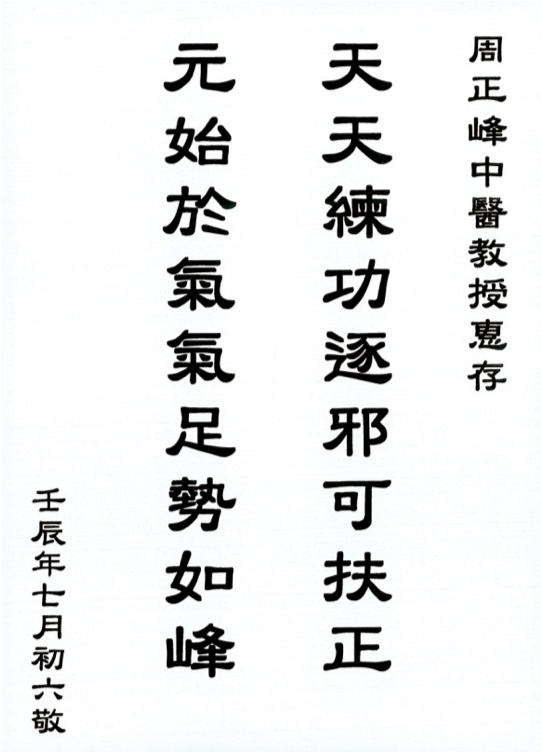 周正峰中醫教授惠存
天天練功逐邪可扶正
元始於氣氣足勢如峰
壬辰年七月初六敬